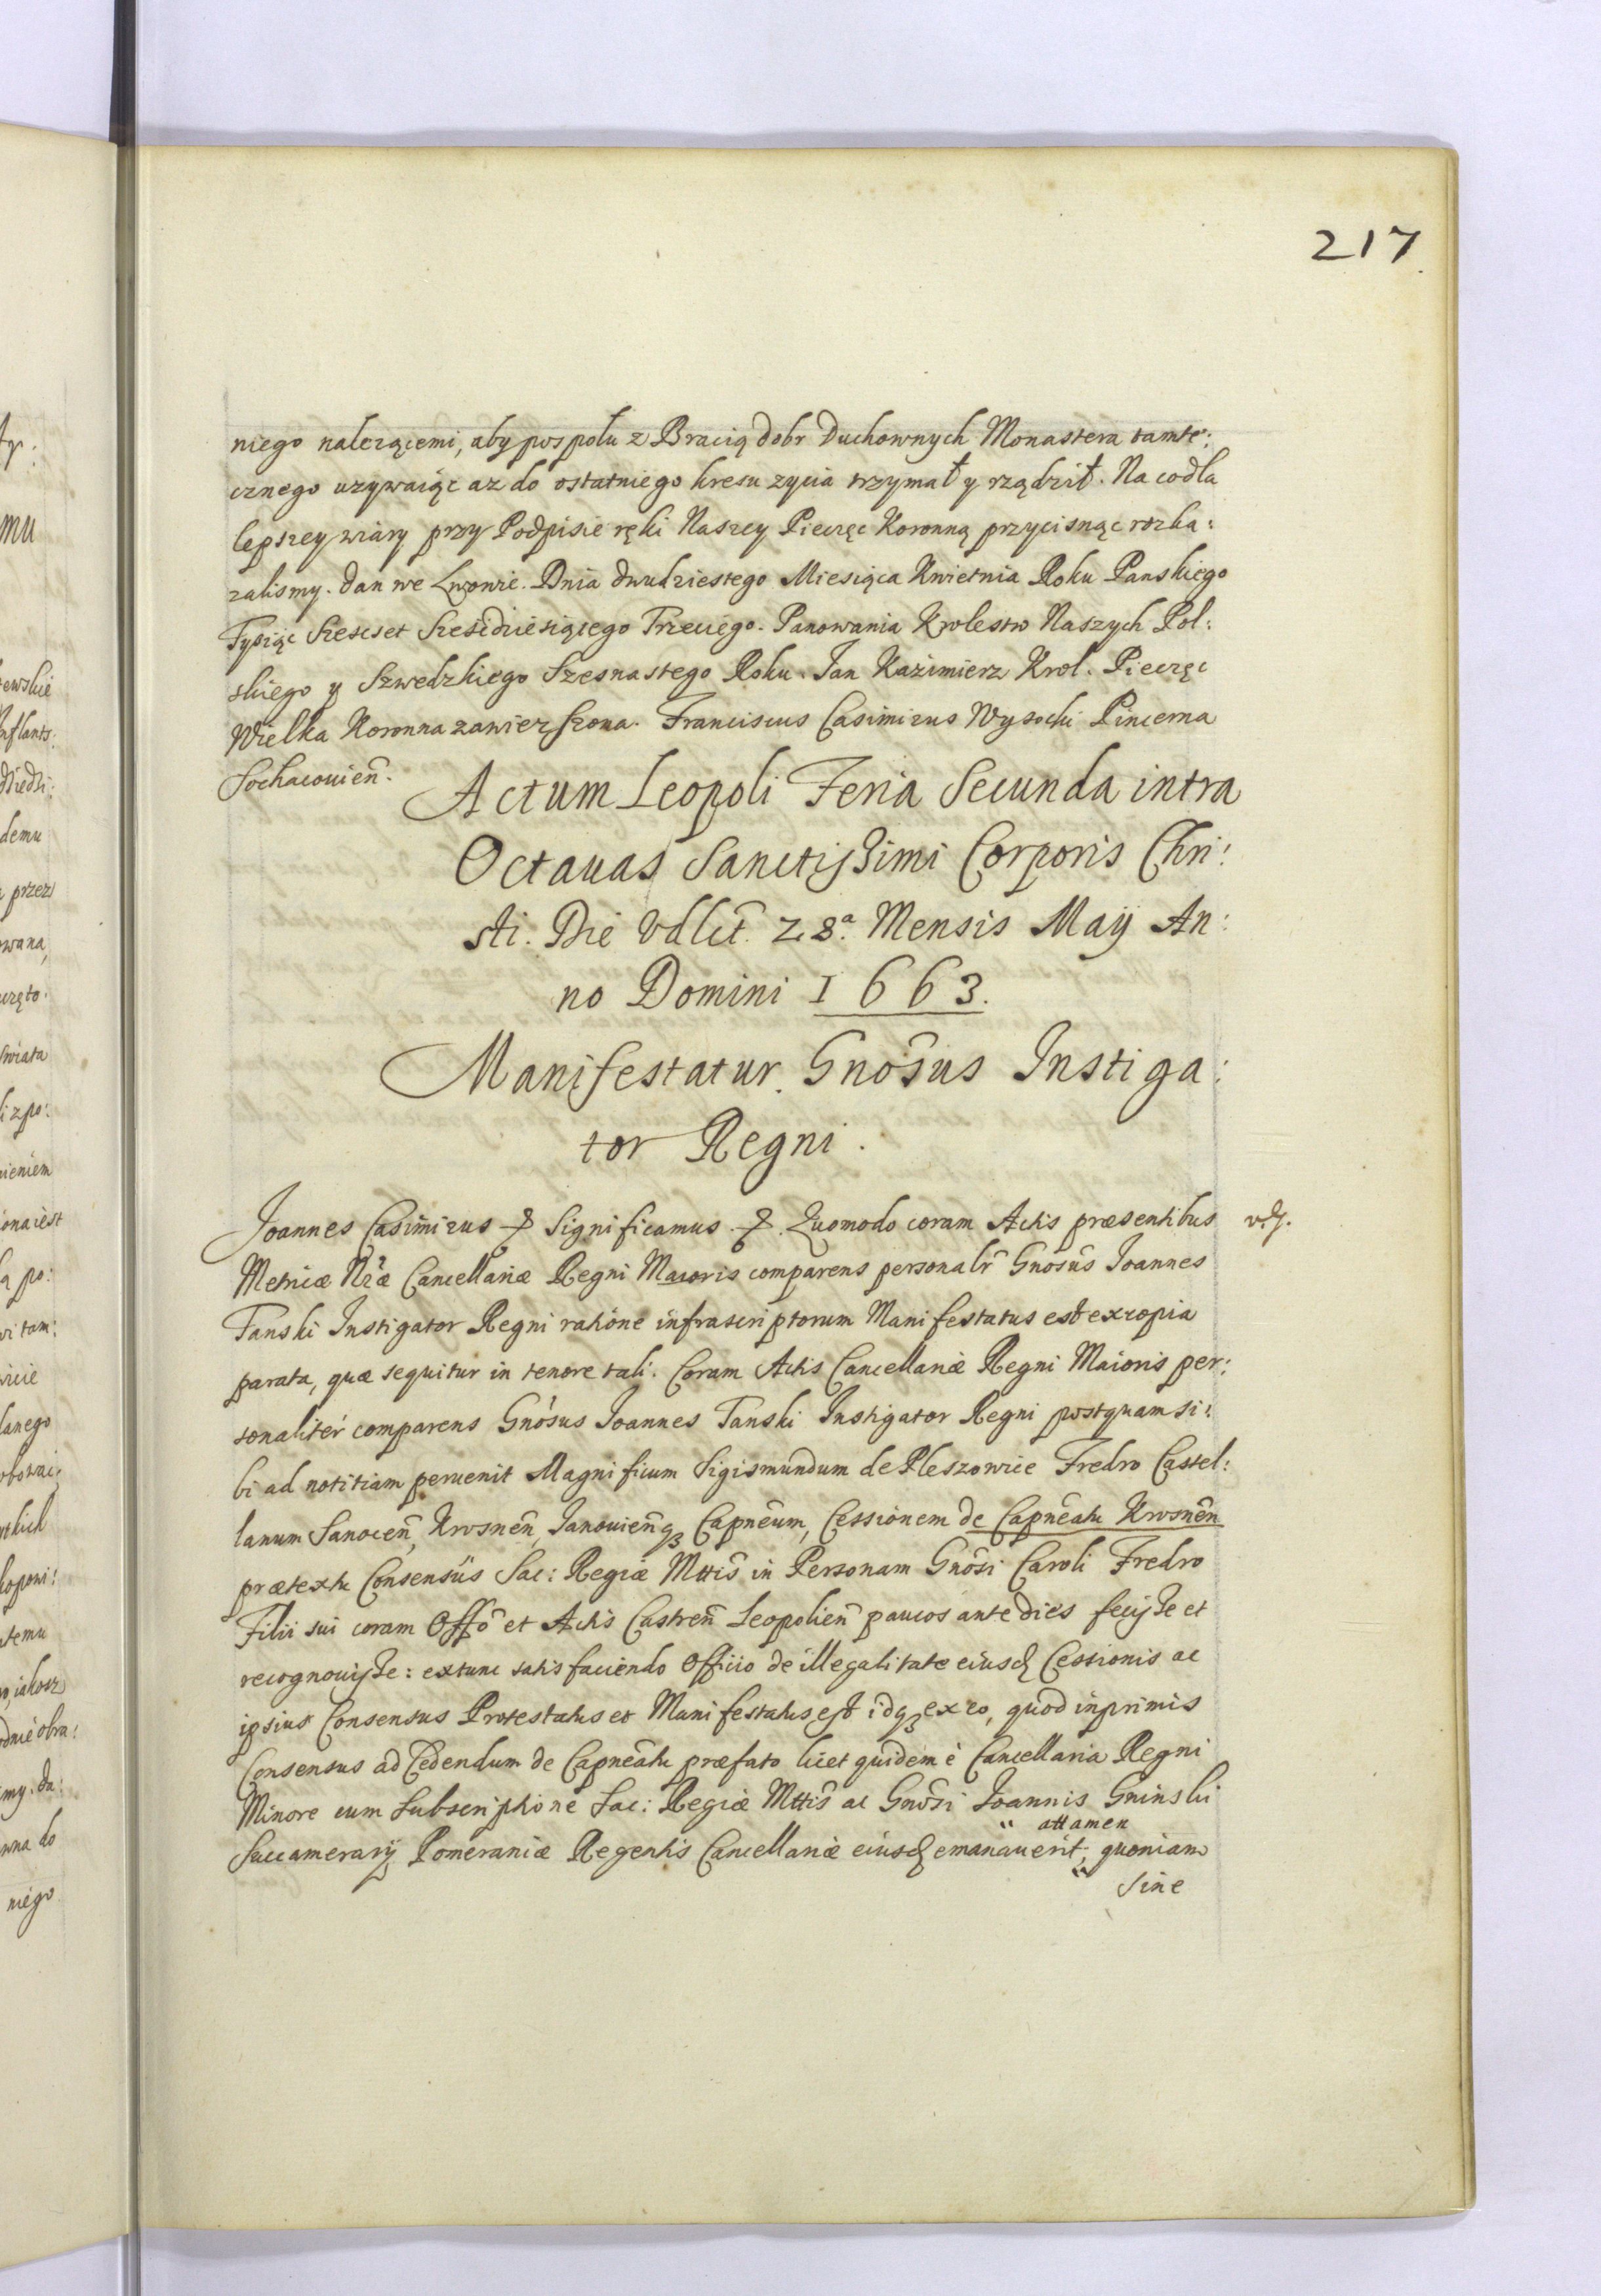 217
niego nalezącemi, aby pospołu z Bracią dobr Duchownych Monastera tamte:
cznego uzywaiąc az do ostatniego kresu zycia trzymał y rządził. Na co dla
lepszey wiary przy Podpisie ręki Naszey Pieczęc Koronną przycisnąc rozka:
zalismy. Dan we Lwowie. Dnia dwudziestego Miesiąca Kwietnia Roku Panskiego
Tysiąc Szescset Szescdziesiątego Trzeciego. Panowania Krolestw Naszych Pol:
skiego y Szwedzkiego Szesnastego Roku. Jan Kazimierz Krol. Pieczęc
Wielka Koronna zawierszona. Franciscus Casimirus Wysocki Pincerna
Sochaczouien̄.
Actum Leopoli Feria Secunda intra
Octauas Sanctissimi Corporis Chri:
sti. Die vdlct. 28a. Mensis Maij An:
no Domini 1663.
Manifestatur Gnôsus Instiga:
tor Regni.
Joannes Casimirus Significamus Quomodo coram Actis præsentibus
Metricæ Nræ Cancellariæ Regni Maioris comparens personalr Gnosus Joannes
Tanski Instigator Regni ratione infrascriptorum Manifestatus est ex copia
parata, quæ sequitur in tenore tali. Coram Actis Cancellariæ Regni Maioris per:
sonaliter comparens Gnosus Joannes Tanski Instigator Regni postquam si:
bi ad notitiam peruenit Magnificum Sigismundum de Pleszowice Fredro Castel:
lanum Sanocen̄, Krosnen̄, Janouien̄q3 Capneum, Cessionem de Capneatu Krosnen̄
prætextu Consensûs Sac: Regiæ Mttis in Personam Gnosi Caroli Fredro
Filii sui coram Offo et Actis Castren̄ Leopolien̄ paucos ante dies fecisse et
recognouisse: extunc satisfaciendo Officio de illegalitate eiusd Cessionis ac
ipsius Consensus Protestatus et Manifestatus est idq3 ex eo, quod inprimis
Consensus ad Cedendum de Capneatu præfato licet quidem è Cancellaria Regni
Minore cum Subscriptione Sac: Regiæ Mttis ac Gnosi Joannis Gninski
attamen
Succamerarij Pomeraniæ Regentis Cancellariæ eiusd emanauerit, quoniam
sine